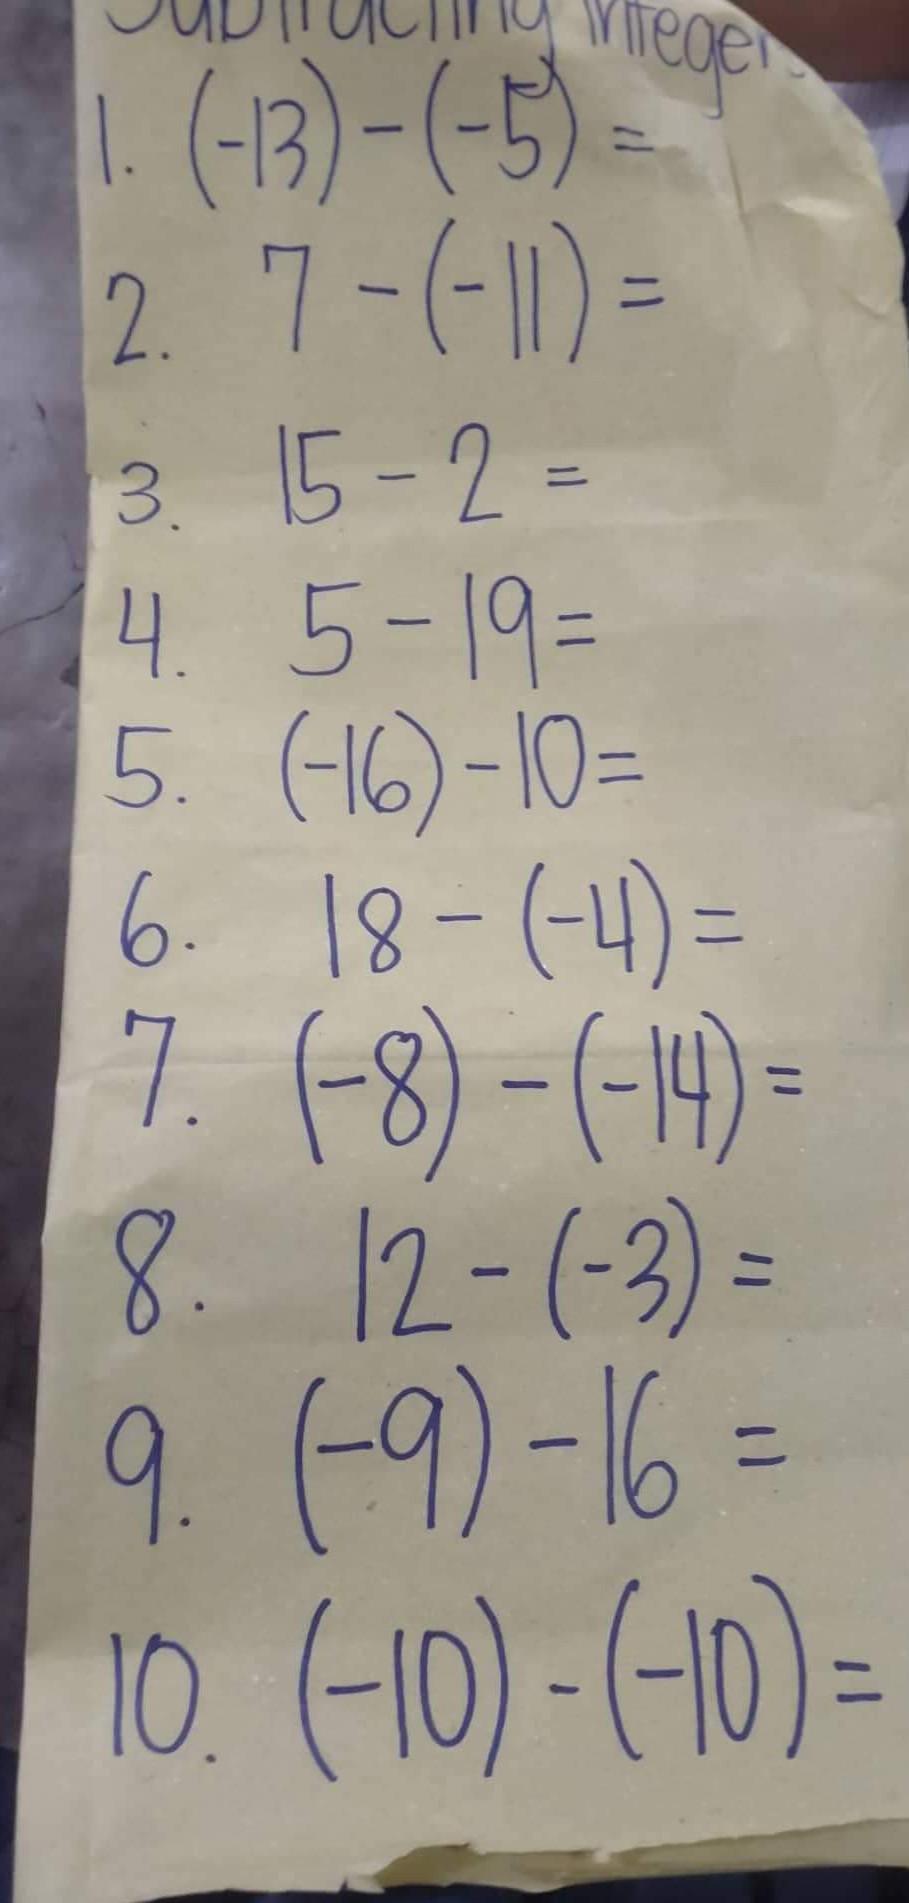 Subtracting Integers
1. (-13) - (-5) =
2. 7 - (-11) =
3. 15 - 2 =
4. 5 - 19 =
5. (-16) - 10 =
6. 18 - (-4) =
7. (-8) - (-14) =
8. 12 - (-3) =
9. (-9) - 16 =
10. (-10) - (-10) =